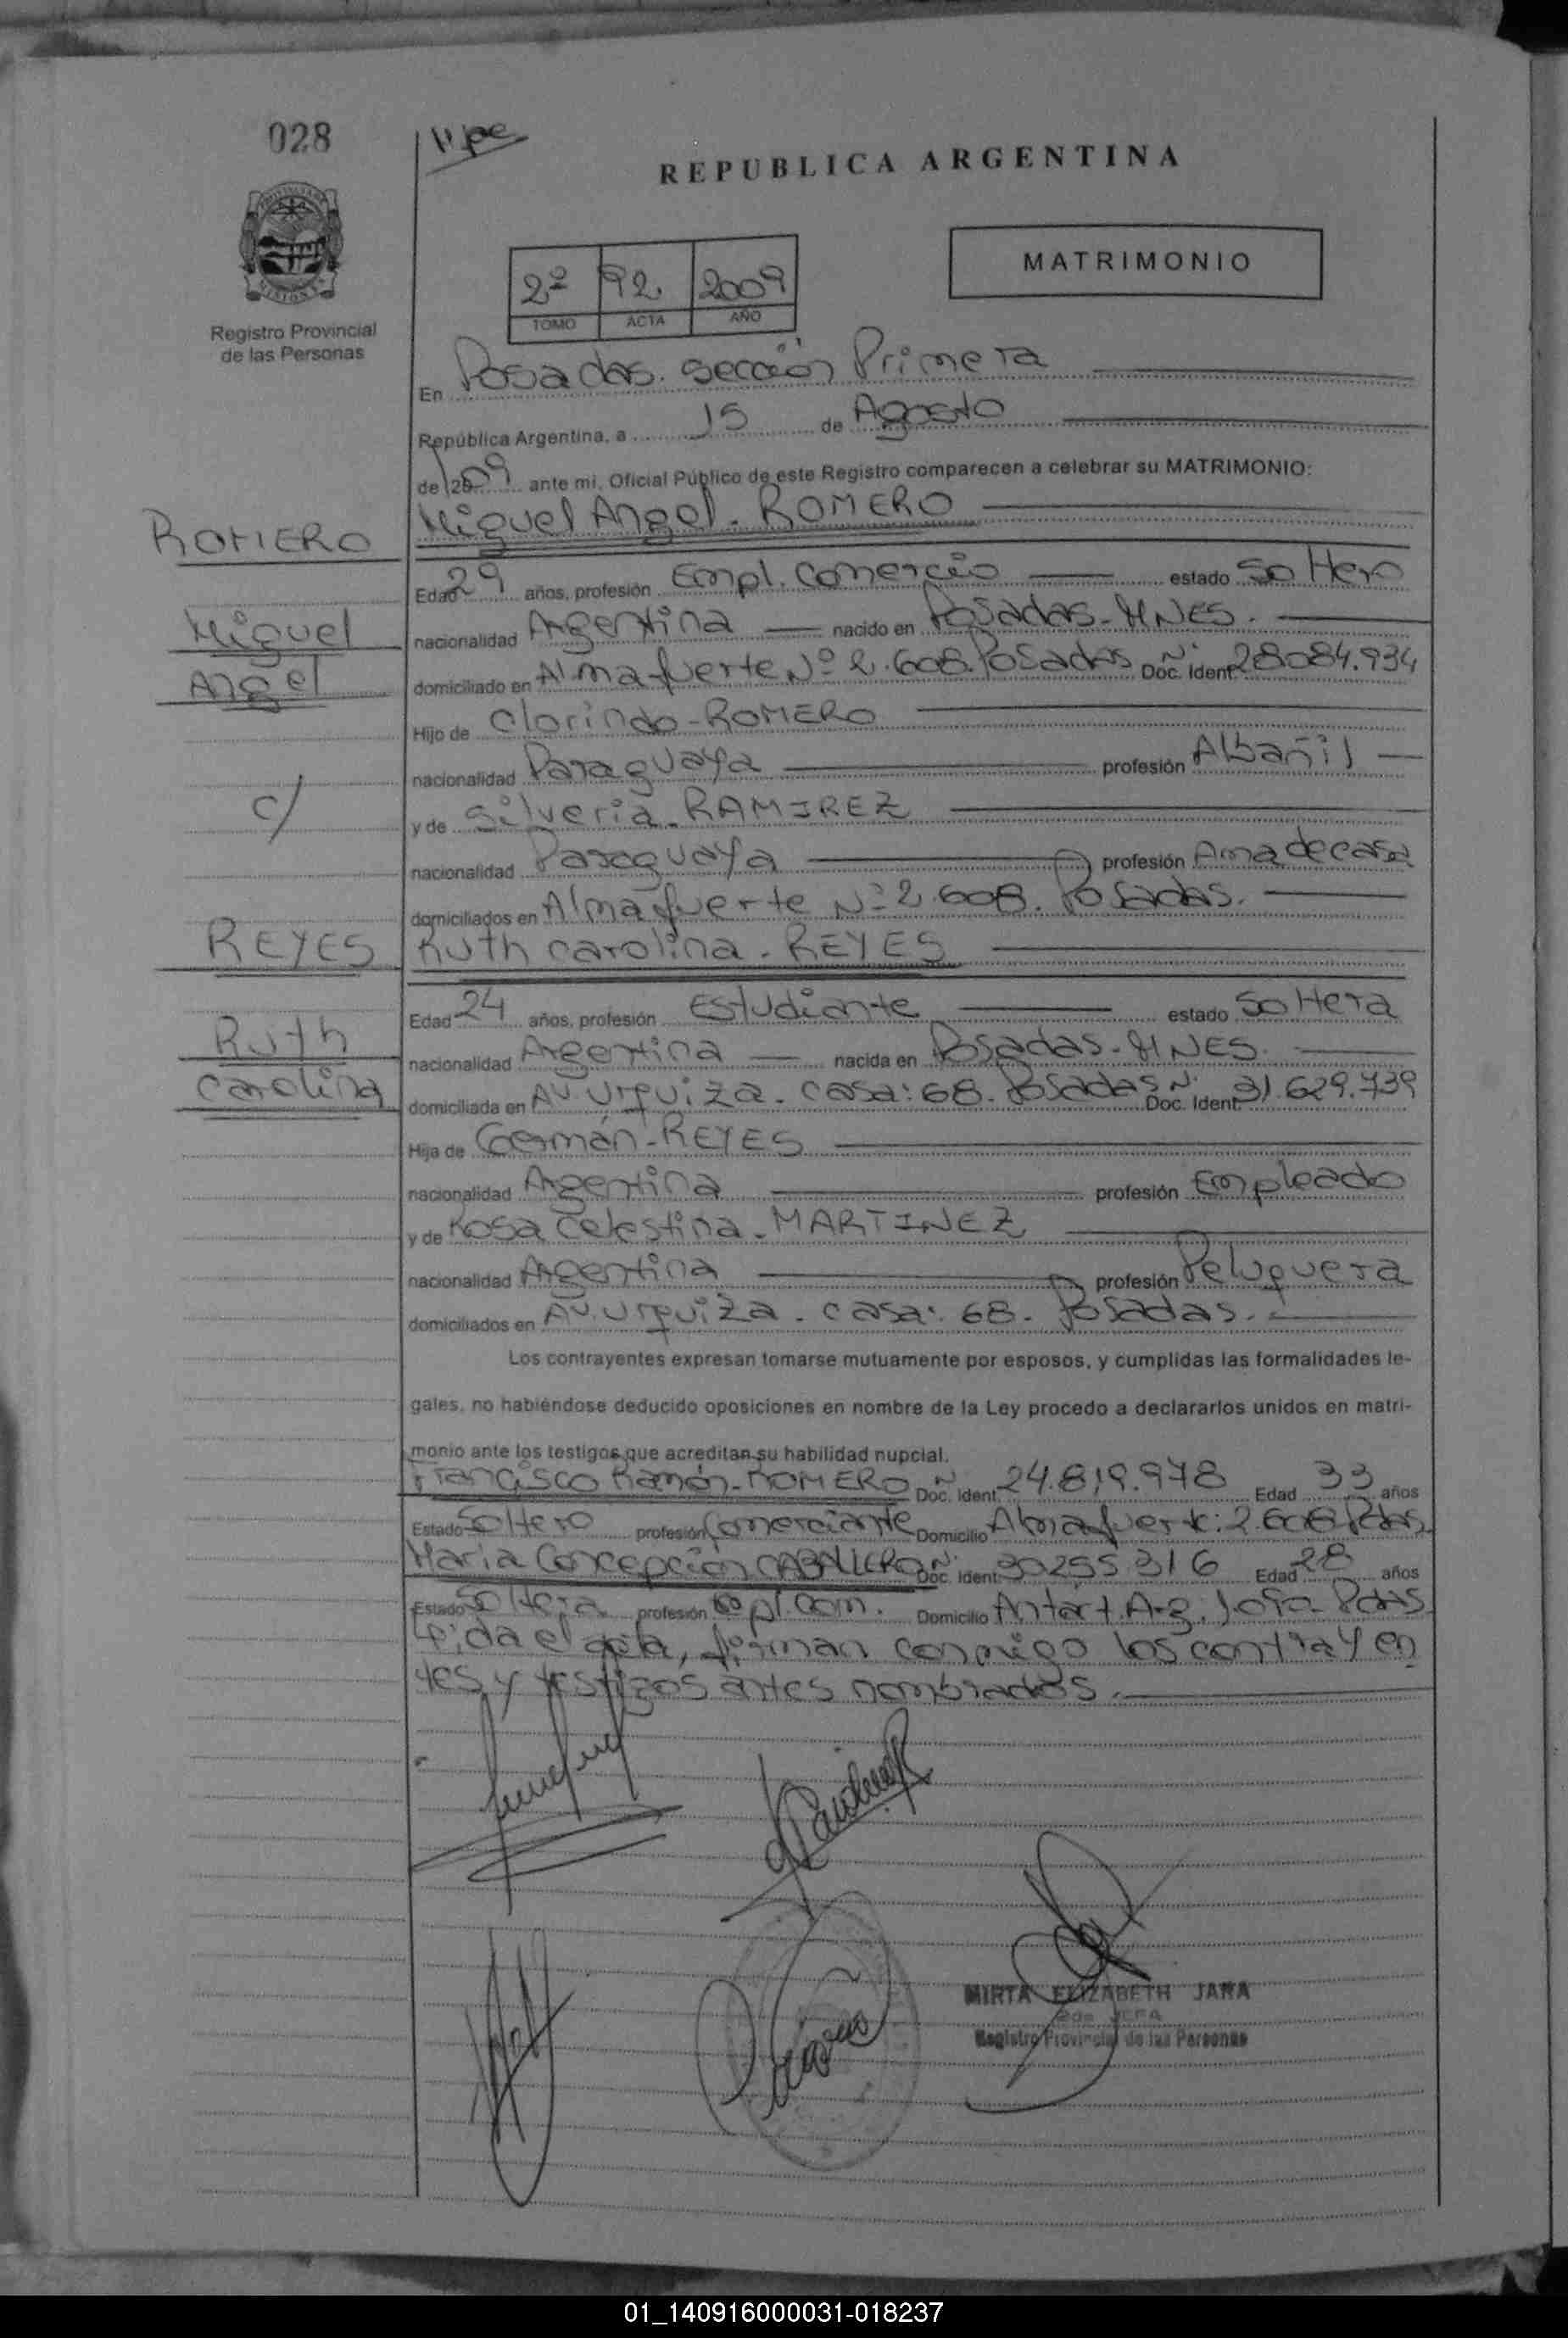 028
REPUBLICA ARGENTINA
MATRIMONIO
2º 92 2009
TOMO ACTA AÑO
Registro Provincial
de las Personas
En Posadas. sección Primera
República Argentina, a 15 de Agosto
de 2009 ante mi, Oficial Público de este Registro comparecen a celebrar su MATRIMONIO:
ROMERO
Miguel Angel. ROMERO
Edad 29 años, profesión Empl. Comercio estado Soltero
Miguel
nacionalidad Argentina nacido en Posadas-MNES.
Angel
domiciliado en Almafuerte Nº 2.608. Posadas Doc. Ident. Nº 28084.934
Hijo de Clorindo-ROMERO
nacionalidad Paraguaya profesión Albañil
c/
y de Silveria. RAMIREZ
nacionalidad Paraguaya profesión Ama de casa
domiciliados en Almafuerte Nº 2.608. Posadas.
REYES
Ruth Carolina. REYES
Edad 24 años, profesión Estudiante estado Soltera
Ruth
nacionalidad Argentina nacida en Posadas-MNES.
Carolina
domiciliada en AV. Urquiza. casa: 68. Posadas Doc. Ident. Nº 31.629.739
Hija de Germán-REYES
nacionalidad Argentina profesión Empleado
y de Rosa Celestina. MARTINEZ
nacionalidad Argentina profesión Peluquera
domiciliados en AV. Urquiza. casa: 68. Posadas.
Los contrayentes expresan tomarse mutuamente por esposos, y cumplidas las formalidades le-
gales, no habiéndose deducido oposiciones en nombre de la Ley procedo a declararlos unidos en matri-
monio ante los testigos que acreditan su habilidad nupcial.
Francisco Ramón-ROMERO Doc. Ident. Nº 24.819.978 Edad 33 años
Estado Soltero profesión Comerciante Domicilio Almafuerte: 2.608 Pdas.
Maria Concepción CABALLERO Doc. Ident. Nº 30255316 Edad 28 años
Estado Soltera profesión Empl. Com. Domicilio Antárt. Arg. Pdas
Leida el acta, firman conmigo los contrayen
tes y testigos antes nombrados.
MIRTA ELIZABETH JARA
2da JEFA
Registro Provincial de las Personas
01_140916000031-018237